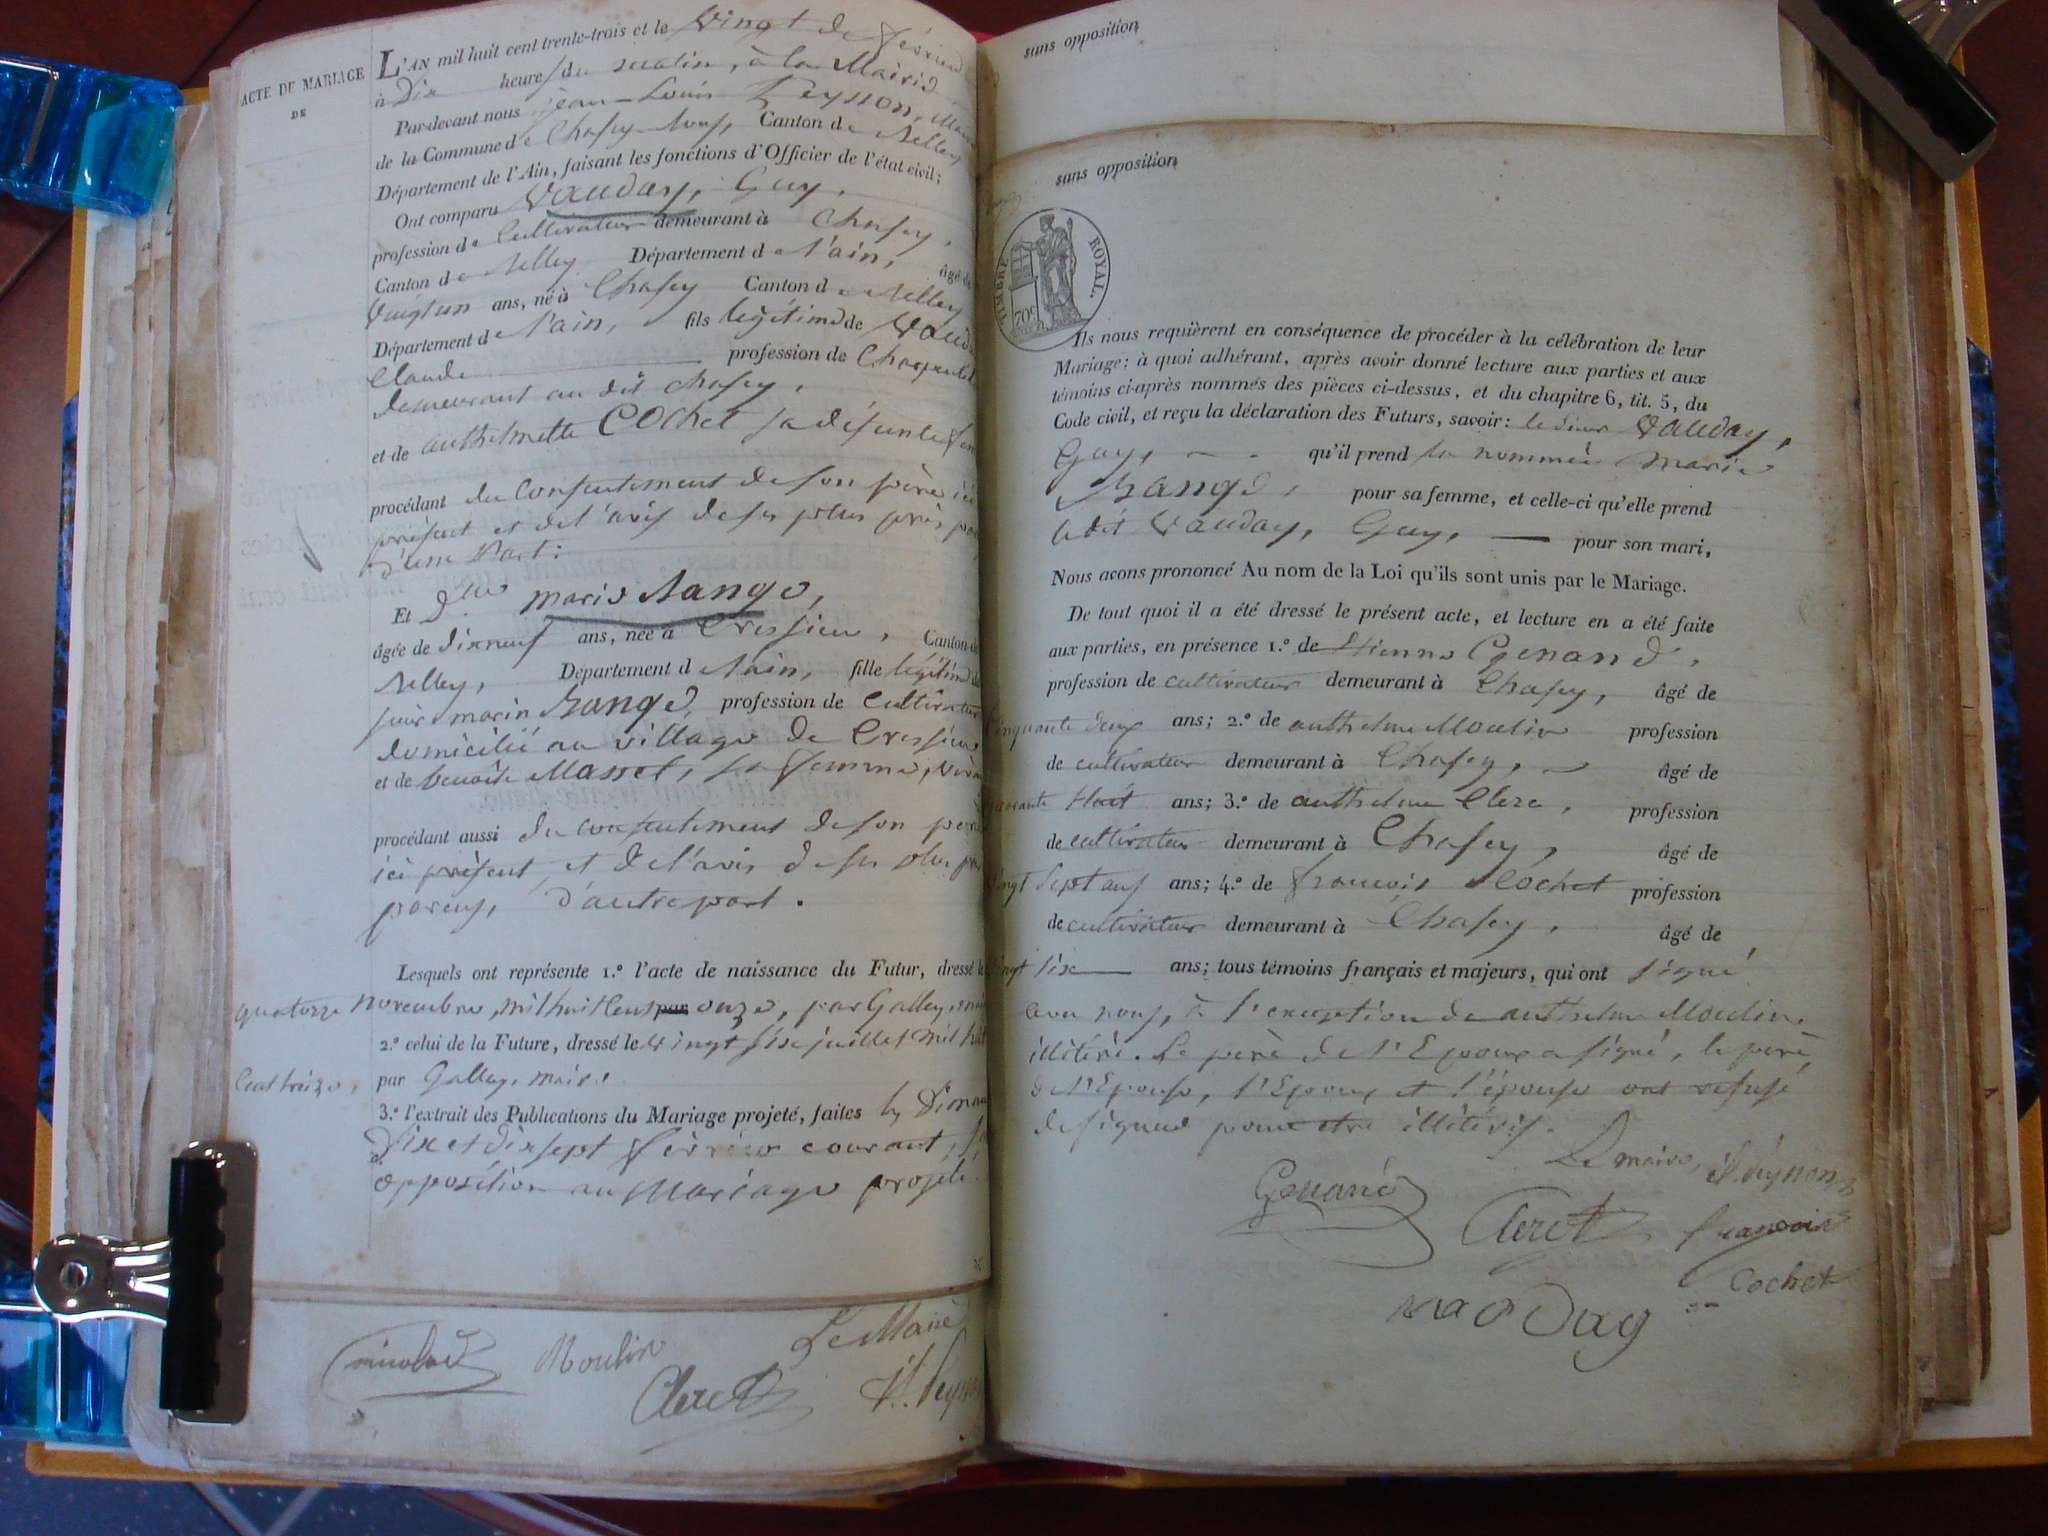 ACTE DE MARIAGE
DE
L'AN mil huit cent trente-trois et le vingt de février
à Dix heures du matin, à la Mairie
Par-devant nous jean-Louis Peysson, Maire
de la Commune de Chasey-Bons, Canton de Belley
Département de l'Ain, faisant les fonctions d'Officier de l'état civil;
Ont comparu Vauday, Guy,
profession de Cultivateur demeurant à Chasey,
Canton de Belley Département de l'ain, âgé de
vingtun ans, né à Chasey Canton de Belley
Département de l'ain, fils légitime de
Claude profession de
demeurant au dit chasey,
et de anthelmette COchet sa défunte
procédant du Consentement de son père ici
présent et de l'avis de ses plus près
d'une Part:
Et Dlle marie Bange,
âgée de dixneuf ans, née à Cressieu, Canton de
Belley, Département de l'ain, fille légitime
marin Bange, profession de cultivateur
domicilié au village de Cressieu
et de benoite Massel, sa femme,
procédant aussi du consentement de son père
ici présent, et de l'avis de ses plus
parens, d'autre part.
Lesquels ont représente 1.º l'acte de naissance du Futur, dressé le
quatorze novembre, mil huit Cent par onze, par Gallay, maire
2.º celui de la Future, dressé le vingt six juillet mil huit
Cent treize, par Gallay, maire.
3.º l'extrait des Publications du Mariage projeté, faites les
dix et dix sept février courant,
opposition au Mariage projeté.
Le Maire
Moulin
Clerct
sans opposition
sans opposition
TIMBRE ROYAL.
70c
Ils nous requièrent en conséquence de procéder à la célébration de leur
Mariage; à quoi adhérant, après avoir donné lecture aux parties et aux
témoins ci-après nommés des pièces ci-dessus, et du chapitre 6, tit. 5, du
Code civil, et reçu la déclaration des Futurs, savoir: le sieur Vauday,
Guy, qu'il prend la nommée Marie
Bange, pour sa femme, et celle-ci qu'elle prend
le dit Vauday, Guy, pour son mari,
Nous avons prononcé Au nom de la Loi qu'ils sont unis par le Mariage.
De tout quoi il a été dressé le présent acte, et lecture en a été faite
aux parties, en présence 1.º de Etienne Genand,
profession de cultivateur demeurant à Chasey, âgé de
cinquante deux ans; 2.º de anthelme Moulin profession
de cultivateur demeurant à Chasey, âgé de
huit ans; 3.º de anthelme Clerc, profession
de cultivateur demeurant à Chasey, âgé de
vingt sept ans ans; 4.º de francois Cochet profession
de cultivateur demeurant à Chasey, âgé de
vingt six ans; tous témoins français et majeurs, qui ont signé
avec nous, à l'exception de anthelme Moulin,
illitéré. Le père de l'Epoux a signé, le père
de l'Epouse, l'Epoux et l'épouse ont refusé
de signer pour etre illitérés.
Le maire, Peysson
Genand
Clerct francois
Cochet
vaoday